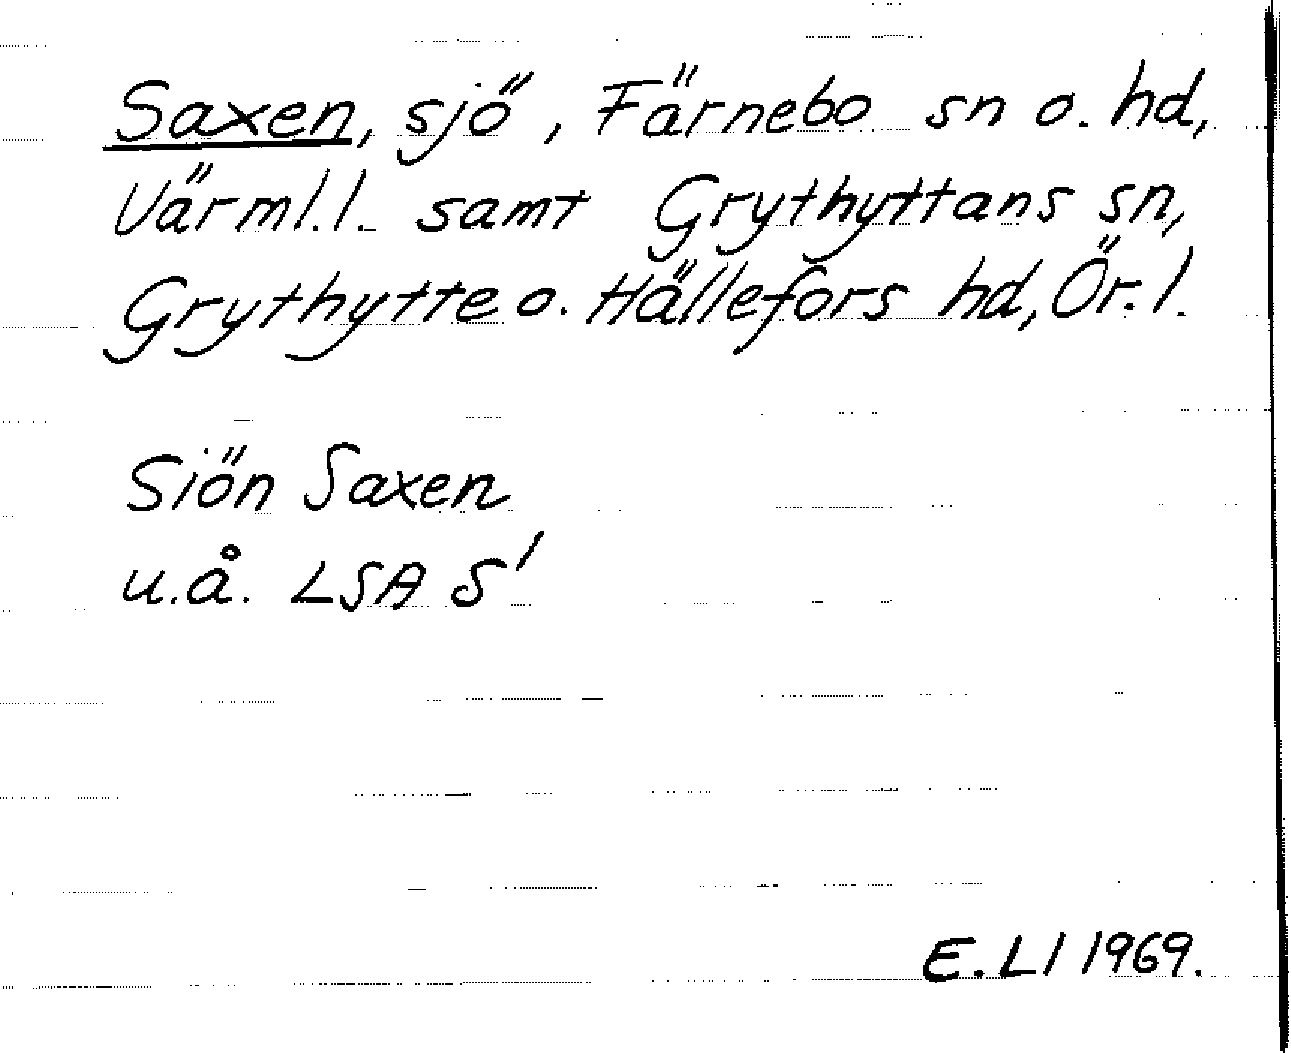 Saxen, sjö, Färnebo sn o. hd,
Värml.l. samt Grythyttans sn,
Grythytte o. Hällefors hd, Ör. l.
Siön Saxen
u.å. LSA S'
E. Ll 1969.